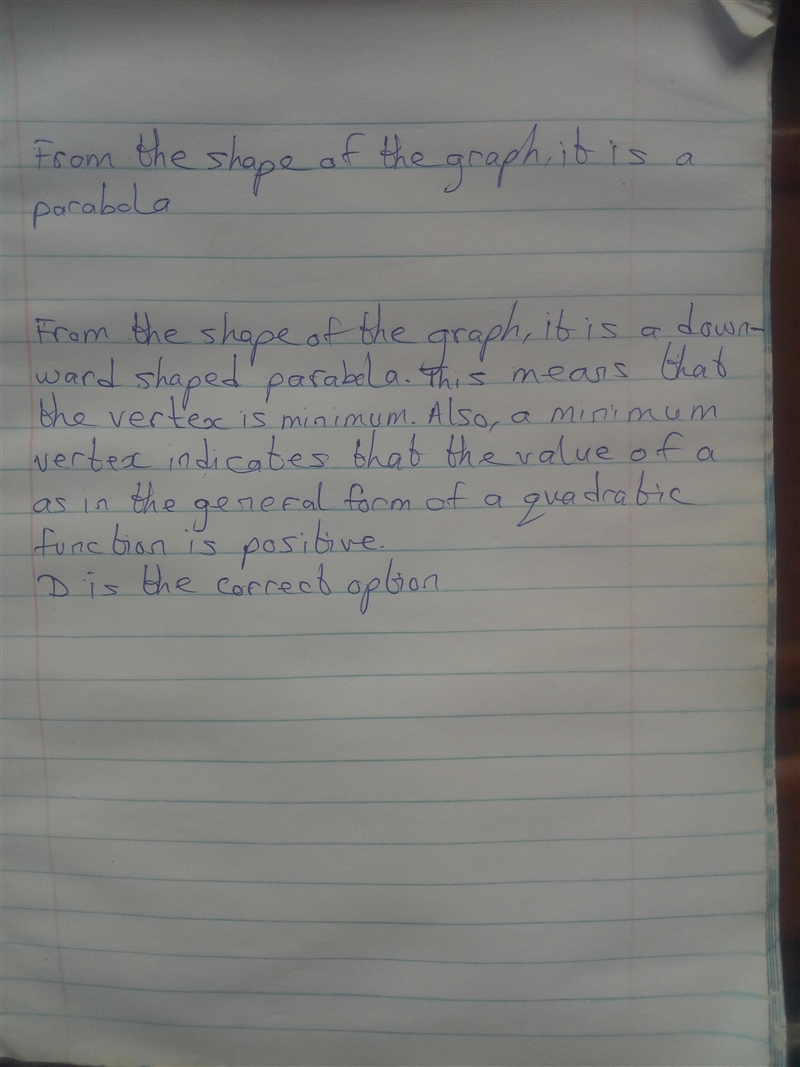 From the shape of the graph, it is a
parabola
From the shape of the graph, it is a down-
ward shaped parabola. This means that
the vertex is minimum. Also, a minimum
vertex indicates that the value of a
as in the general form of a quadratic
function is positive.
D is the correct option